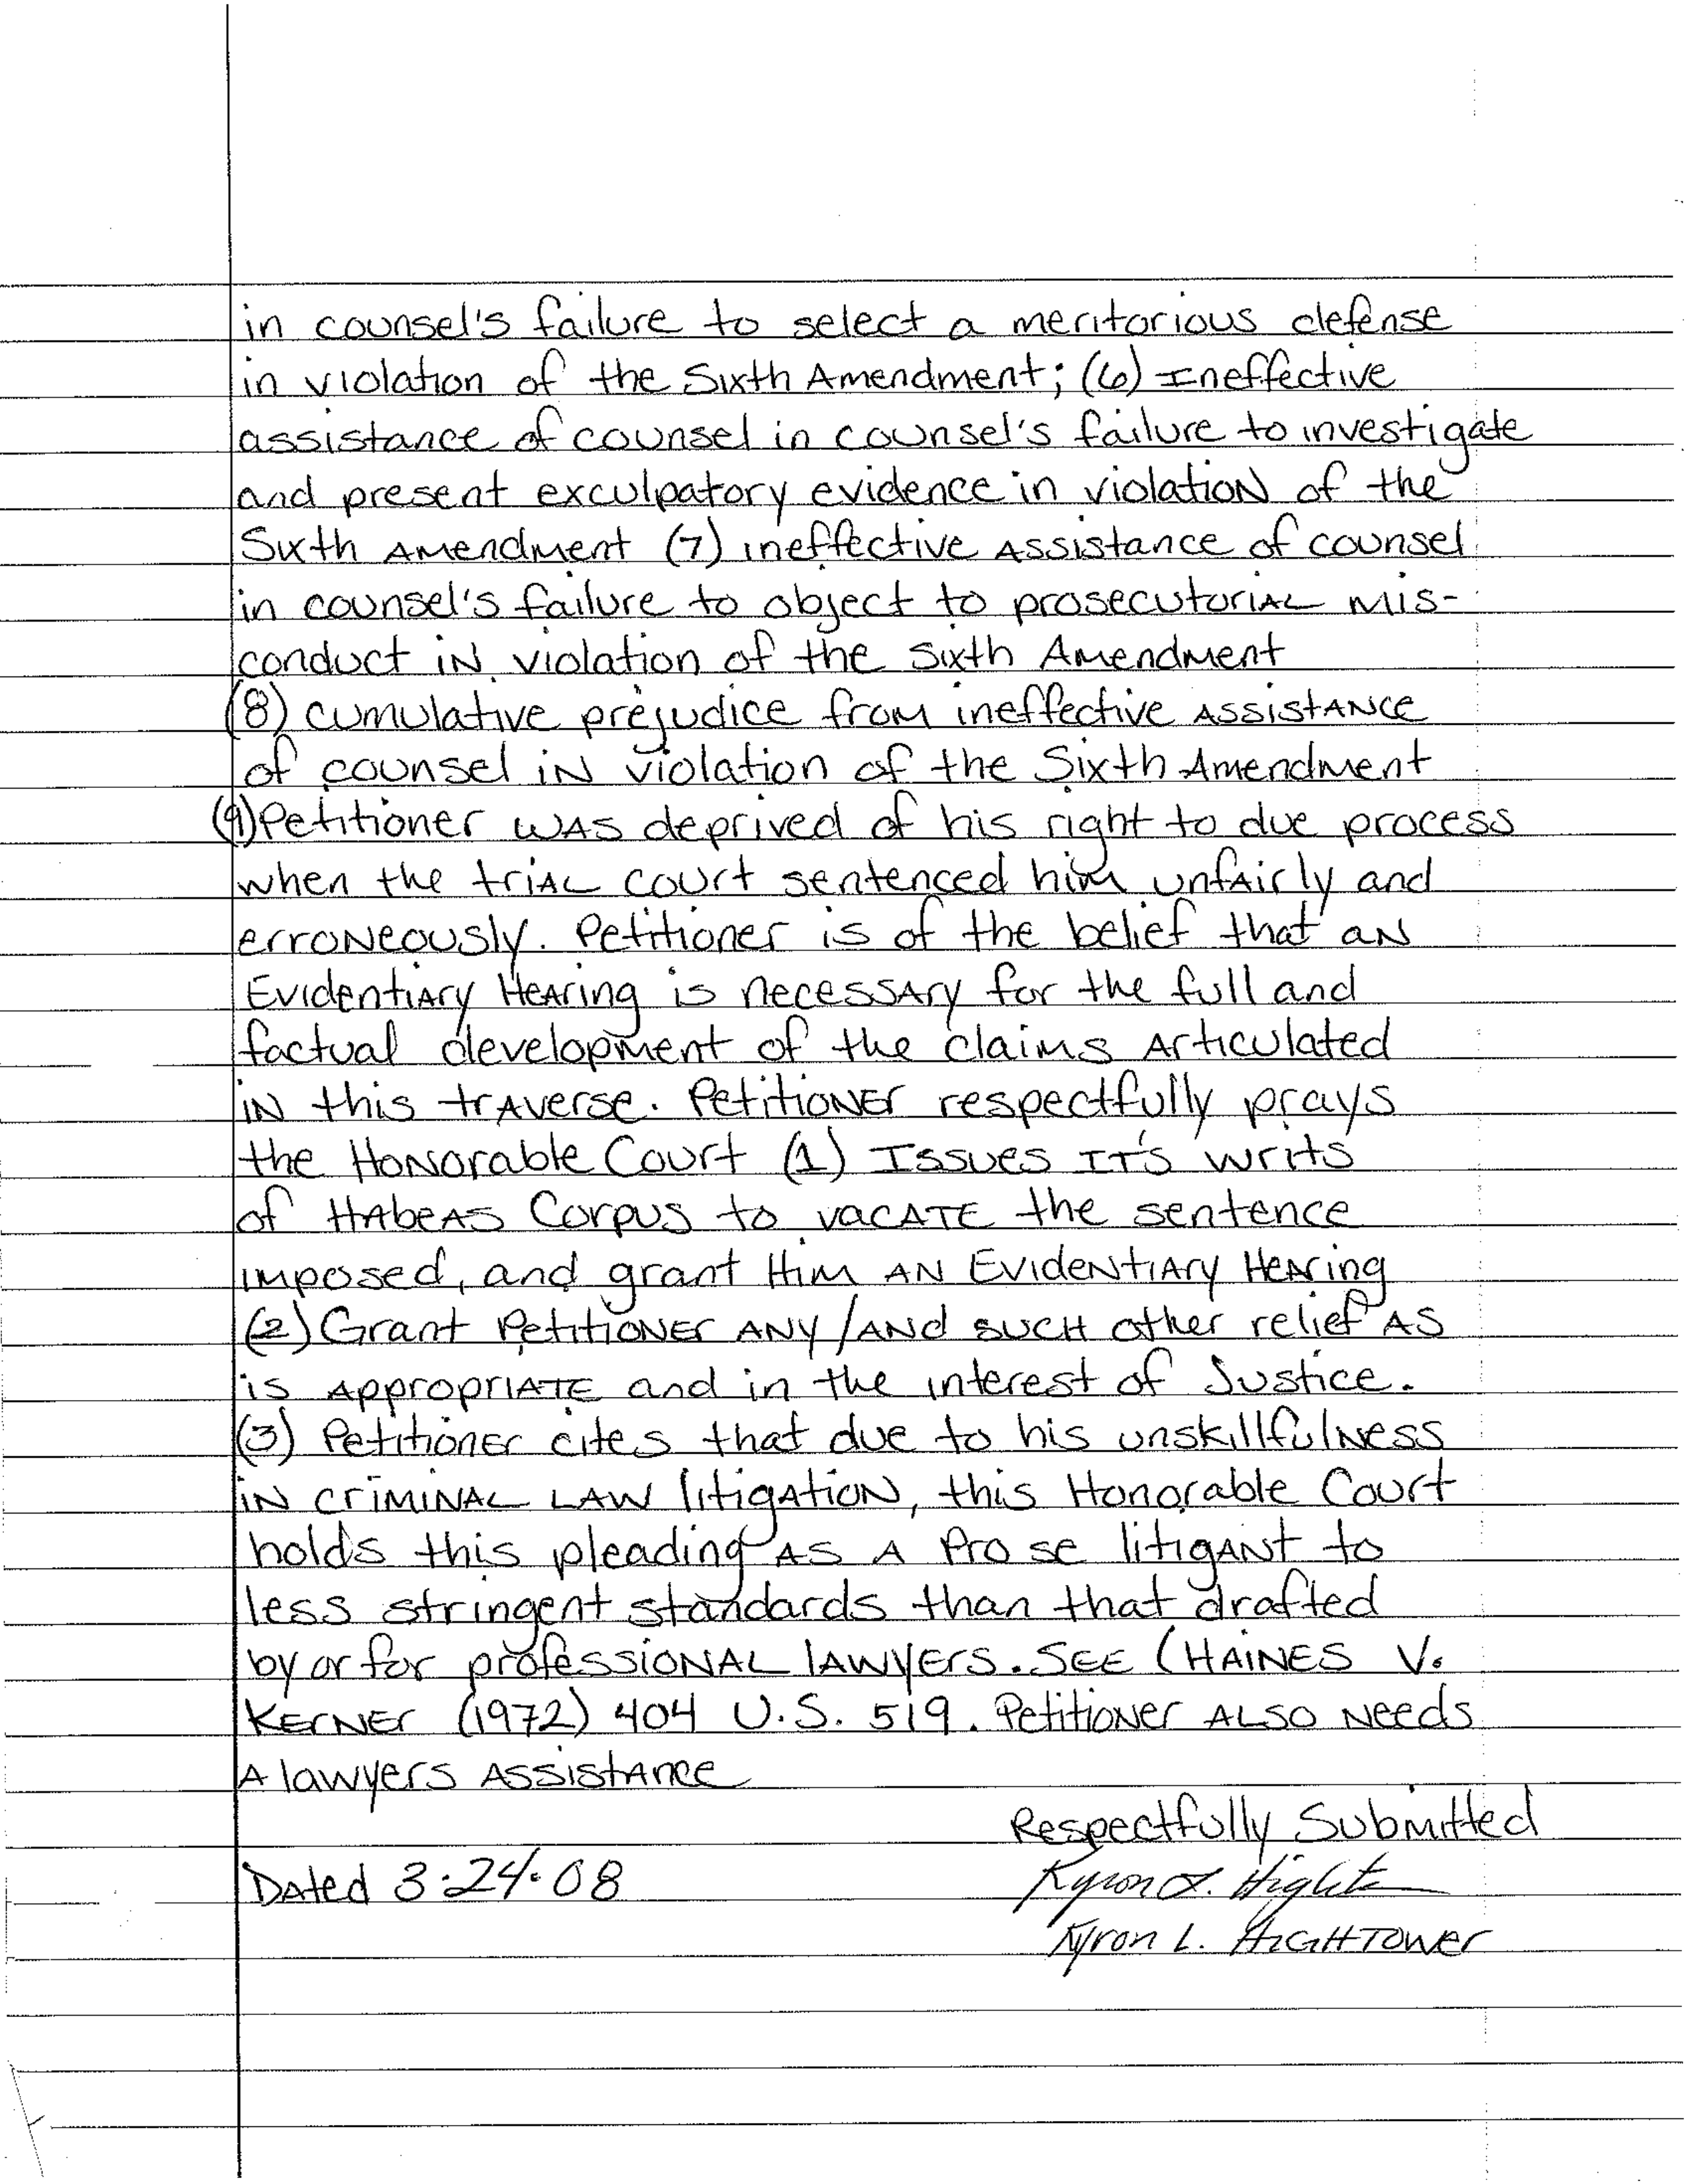 in counsel's failure to select a meritorious defense
in violation of the Sixth Amendment; (6) Ineffective
assistance of counsel in counsel's failure to investigate
and present exculpatory evidence in violation of the
Sixth Amendment (7) ineffective Assistance of counsel
in counsel's failure to object to prosecutorial mis-
conduct in violation of the sixth Amendment
(8) cumulative prejudice from ineffective Assistance
of counsel in violation of the Sixth Amendment
(9) Petitioner was deprived of his right to due process
when the trial court sentenced him unfairly and
erroneously. Petitioner is of the belief that an
Evidentiary Hearing is necessary for the full and
factual development of the claims Articulated
in this traverse. Petitioner respectfully prays
the Honorable Court (1) Issues It's writs
of Habeas Corpus to vacate the sentence
imposed, and grant Him an Evidentiary Hearing
(2) Grant Petitioner Any/And such other relief as
is Appropriate and in the interest of Justice.
(3) Petitioner cites that due to his unskillfulness
in criminal Law litigation, this Honorable Court
holds this pleading As A Pro se litigant to
less stringent standards than that drafted
by or for professional lawyers. SEE (HAINES V.
KERNER (1972) 404 U.S. 519. Petitioner Also Needs
A lawyers Assistance
Respectfully Submitted
Dated 3.24.08
Kyron L. Hight
Kyron L. HIGHTOWER